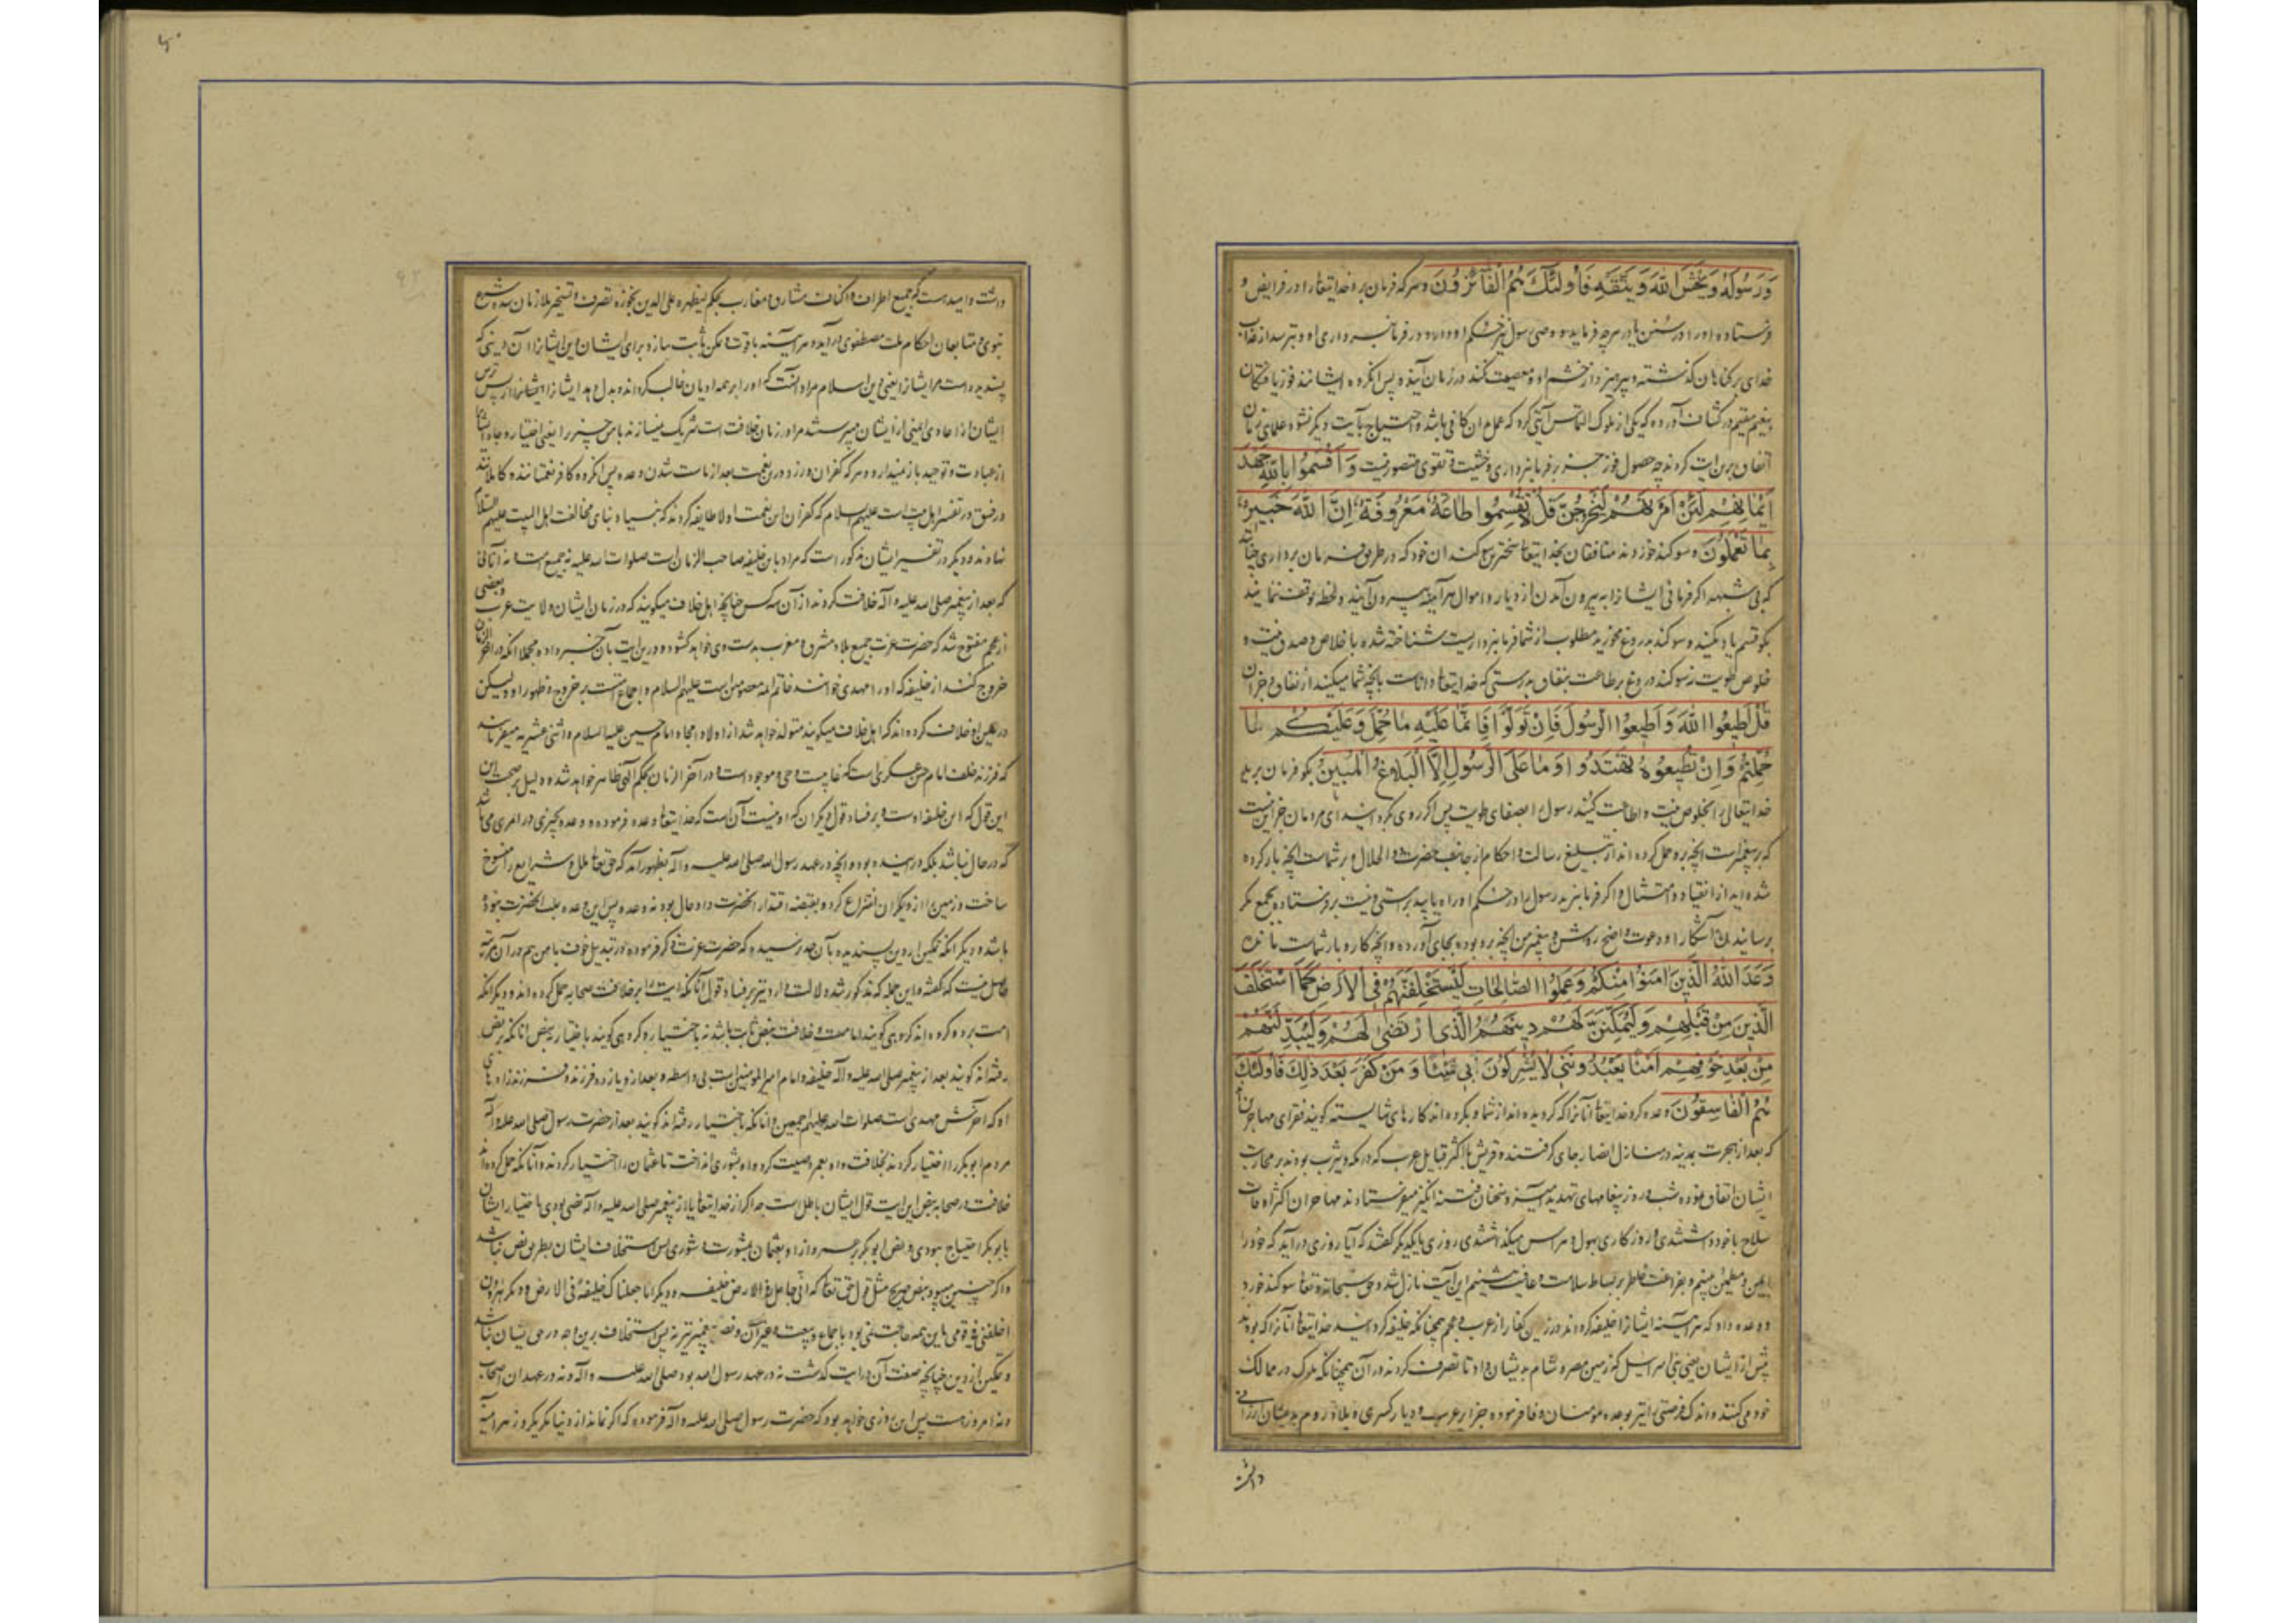 وَرَسُولَهُ وَيَخْشَ اللهَ وَيَتَّقْهِ فَأُولٰئِكَ هُمُ الْفَائِزُونَ و هر که فرمان برد خدایتعالی را در فرایض و
فرستاده او را در سنن یا در هرچه فرماید
خدای بر گناهان گذشته و بپرهیزد از خشم او و معصیت نکند در زمان آینده پس آنگروه ایشانند فوز یافتگان
بنعیم مقیم در کشاف آورده که یکی از ملوک التماس آیتی کرد که عمل بان کافی باشد و احتیاج بآیت دیگر نشود علمای زمان
اتفاق برین آیت کردند چه حصول فوز جز بفرمانبرداری و خشیت و تقوی متصور نیست وَأَقْسَمُوا بِاللهِ جَهْدَ
أَيْمَانِهِمْ لَئِنْ أَمَرْتَهُمْ لَيَخْرُجُنَّ قُلْ لَا تُقْسِمُوا طَاعَةٌ مَعْرُوفَةٌ إِنَّ اللهَ خَبِيرٌ
بِمَا تَعْمَلُونَ و سوگند خوردند منافقان بخدایتعالی سخترین سوگندان خود که در طریق فرمان برداری
که بی شبهه اگر فرمائی ایشانرا به بیرون آمدن از دیار و اموال هرآینه بیرون آیند و لحظه توقف ننمایند
بگو قسم یاد مکنید و سوگند بدروغ مخورید مطلوب از شما فرمانبرداریست شناخته شده باخلاص و صدق نیت و
خلوص طویت نه سوگند دروغ بر طاعت بنفاق بدرستی که خدایتعالی داناست بآنچه شما میکنید از نفاق و جز آن
قُلْ أَطِيعُوا اللهَ وَأَطِيعُوا الرَّسُولَ فَإِنْ تَوَلَّوْا فَإِنَّمَا عَلَيْهِ مَا حُمِّلَ وَعَلَيْكُمْ مَا
حُمِّلْتُمْ وَإِنْ تُطِيعُوهُ تَهْتَدُوا وَمَا عَلَى الرَّسُولِ إِلَّا الْبَلَاغُ الْمُبِينُ بگو فرمان برید
خدایتعالی را بخلوص نیت و اطاعت کنید رسول را بصفای طویت پس اگر روی بگردانید ای مردمان جز این نیست
که بر پیغمبرست آنچه برو حمل کرده اند از تبلیغ رسالت و احکام از جانب حضرت ذو الجلال و بر شماست آنچه بار کرده
شده اید از انقیاد و امتثال و اگر فرمان برید رسول را در حکم او راه یابید براستی و نیست بر فرستاده بجمع مگر
رسانیدنی آشکارا و دعوت واضح روشن و پیغمبر من آنچه برو بوده بجای آورده و آنچه کار و بار شماست مانده
وَعَدَ اللهُ الَّذِينَ آمَنُوا مِنْكُمْ وَعَمِلُوا الصَّالِحَاتِ لَيَسْتَخْلِفَنَّهُمْ فِي الْأَرْضِ كَمَا اسْتَخْلَفَ
الَّذِينَ مِنْ قَبْلِهِمْ وَلَيُمَكِّنَنَّ لَهُمْ دِينَهُمُ الَّذِي ارْتَضَى لَهُمْ وَلَيُبَدِّلَنَّهُمْ
مِنْ بَعْدِ خَوْفِهِمْ أَمْنًا يَعْبُدُونَنِي لَا يُشْرِكُونَ بِي شَيْئًا وَمَنْ كَفَرَ بَعْدَ ذَلِكَ فَأُولَئِكَ
هُمُ الْفَاسِقُونَ وعده کرد خدایتعالی آنانرا که گرویده اند از شما و بکرده اند کارهای شایسته گویند فقرای مهاجران
که بعد از هجرت بمدینه در منازل انصار جای گرفتند و قریش با اکثر قبایل عرب که در مکه و یثرب بودند بر محاربت
ایشان اتفاق نموده شب و روز پیغامهای تهدید آمیز و سخنان فتنه انگیز میفرستادند مهاجران اکثر اوقات
سلاح با خود داشتندی و روزگاری بهول و هراس میگذاشتندی روزی با یکدیگر گفتند که آیا روزی درآید که خود را
ایمن و مطمئن بینیم و بفراغت خاطر بر بساط سلامت و عافیت نشینیم این آیت نازل شد و حق سبحانه و تعالی سوگند خورد
و وعده داد که هرآینه ایشانرا خلیفه گرداند در زمین کفار از عرب و عجم همچنانکه خلیفه گردانید خدایتعالی آنانرا که بودند
پیش از ایشان یعنی بنی اسرائیل که زمین مصر و شام بدیشان داد تا تصرف کردند در آن همچنانکه ملوک در ممالک
خود میکنند و اندک فرصتی را بوعده مؤمنان وفا فرموده جزایر عرب و دیار کسری و بلاد روم بدیشان ارزانی
داشت
داشت و امید است که جمیع اطراف و اکناف مشارق و مغارب بحکم لیظهره علی الدین بحوزه تصرف و تسخیر ملازمان سده شرع
نبوی و متابعان احکام ملت مصطفوی درآید و هرآینه باقوت و تمکن ثابت سازد برای ایشان دین ایشانرا آن دینی که
پسندیده است مر ایشانرا یعنی دین اسلام مراد آنست که او را بر همه ادیان غالب گرداند و بدل دهد ایشانرا از پس ترس
ایشان از اعادی ایمنی از ایشان میپرستند مرا در زمان خلافت شریک نمیسازند بامن چیزیرا
از عبادت و توحید باز ندارد و هر که کفران ورزد درین نعمت بعد از راست شدن وعده پس آنگروه کافر نعمتانند
و در تفسیر اهل بیت است علیهم السلام که کفران این نعمت اولا طایفه کردند که بنیاد بنای مخالفت اهل البیت علیهم السلام
نهادند و دیگر در تفسیر ایشان مذکور است که مراد باین خلیفه صاحب الزمان است صلوات الله علیه نه جمیع امت و نه آنانی
که بعد از پیغمبر صلی الله علیه و آله خلافت کردند از آن سه کس چنانچه اهل خلاف میگویند که در زمان ایشان ولایت عرب و بعضی
از عجم مفتوح شد که حضرت عزت جمیع بلاد مشرق و مغرب بدست وی خواهد گشود و درین آیت بآن خبر داده مجملا آنکه در آخر الزمان
خروج کند از خلیفه که او را مهدی خوانند خاتم ائمه معصومین است علیهم السلام و اجماع است بر خروج و ظهور او و لیکن
در تعیین اختلاف کرده اند که اهل خلاف میگویند متولد خواهد شد از اولاد امجاد امام حسین علیه السلام و اثنی عشریه میفرمایند
که فرزند خلف امام حسن عسکری است که غایبست و حی و موجود است و در آخر الزمان بحکم الهی ظاهر خواهد شد و دلیل بر صحت این
این قول که این خلیفه اوست و بر فساد قول دیگران که او نیست آن است که خدایتعالی وعده فرموده و وعده بچیزی و امری می باشد
که در حال نباشد بلکه در آینده بود و آنچه در عهد رسول الله صلی الله علیه و آله بظهور آمد که حق تعالی ملل و شرایع را منسوخ
ساخت و زمین را از دیگران انتزاع کرد و بقبضه اقتدار آنحضرت داد حال بود نه وعده پس این وعده بعد آنحضرت بوده
باشد و دیگر آنکه تمکین این دین پسندیده بآن حد نرسیده که حضرت عزت ذکر فرموده و در تبدیل خوف بامن هم در آن مرتبه
حاصل نیست که گفته و این جمله که مذکور شد دلالت دارد نیز بر فساد قول آنانکه آیت را بر خلافت صحابه حمل کرده اند و دیگر آنکه
امت بر دو گروه اند گروهی گویند امامت و خلافت بنص ثابت باشد نه باختیار و گروهی گویند باختیار نه بنص آنانکه بر نص
رفته اند گویند بعد از پیغمبر صلی الله علیه و آله خلیفه و امام امیر المؤمنین است بی واسطه و بعد از او یازده فرزند و فرزندزادهای
او که آخرش مهدی است صلوات الله علیهم اجمعین و آنانکه باختیار رفته اند گویند بعد از حضرت رسول صلی الله علیه و آله
مردم ابوبکر را اختیار کردند بخلافت و او بعمر وصیت کرد و او بشوری انداخت تا عثمان را اختیار کردند و آنانکه حمل کرده اند
خلافت در صحابه بنص این آیت قول ایشان باطل است چه اگر از خدایتعالی یا از پیغمبر صلی الله علیه و آله نصی بودی باختیار ایشان
بابوبکر احتیاج نبودی و بنص ابوبکر بر عمر و از او بعثمان بمشورت و شوری پس استخلاف ایشان بطریق نص نباشد
و اگر چنین میبود بنص صریح مثل قول حق تعالی که انی جاعل فی الارض خلیفه و دیگر انا جعلناک خلیفة فی الارض و دیگر هرون
اخلفنی فی قومی باین همه حاجت نمی بود باجماع و بیعت و غیر آن و نص پیغمبر نیز نه پس استخلاف برین وجه در حق ایشان نباشد
و تمکین از دین چنانچه صفت آن در آیت گذشت نه در عهد رسول الله بود صلی الله علیه و آله و نه در عهد آن اصحاب
و نه امروز هست پس این روزی خواهد بود که حضرت رسول صلی الله علیه و آله فرموده که اگر نماند از دنیا مگر یکروز هرآینه